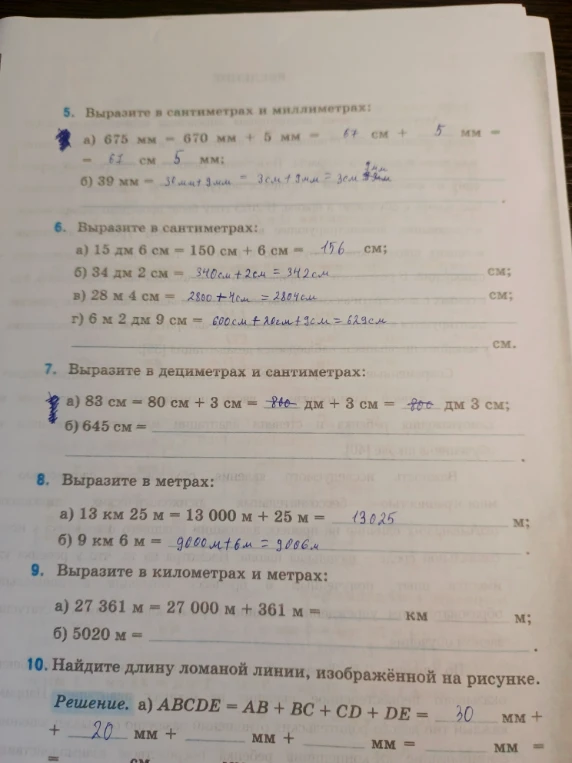 5. Выразите в сантиметрах и миллиметрах:
а) 675 мм = 670 мм + 5 мм = 67 см + 5 мм =
= 67 см 5 мм;
б) 39 мм = 30мм+9мм = 3см+9мм = 3см 9мм
6. Выразите в сантиметрах:
а) 15 дм 6 см = 150 см + 6 см = 156 см;
б) 34 дм 2 см = 340см+2см = 342см см;
в) 28 м 4 см = 2800+4см = 2804см см;
г) 6 м 2 дм 9 см = 600см+20см+9см = 629см
см.
7. Выразите в дециметрах и сантиметрах:
а) 83 см = 80 см + 3 см = 800 дм + 3 см = 800 дм 3 см;
б) 645 см =
.
8. Выразите в метрах:
а) 13 км 25 м = 13 000 м + 25 м = 13025 м;
б) 9 км 6 м = 9000м+6м = 9006м .
9. Выразите в километрах и метрах:
а) 27 361 м = 27 000 м + 361 м = км м;
б) 5020 м = .
10. Найдите длину ломаной линии, изображённой на рисунке.
Решение. а) ABCDE = AB + BC + CD + DE = 30 мм +
+ 20 мм + мм + мм = мм =
= см мм